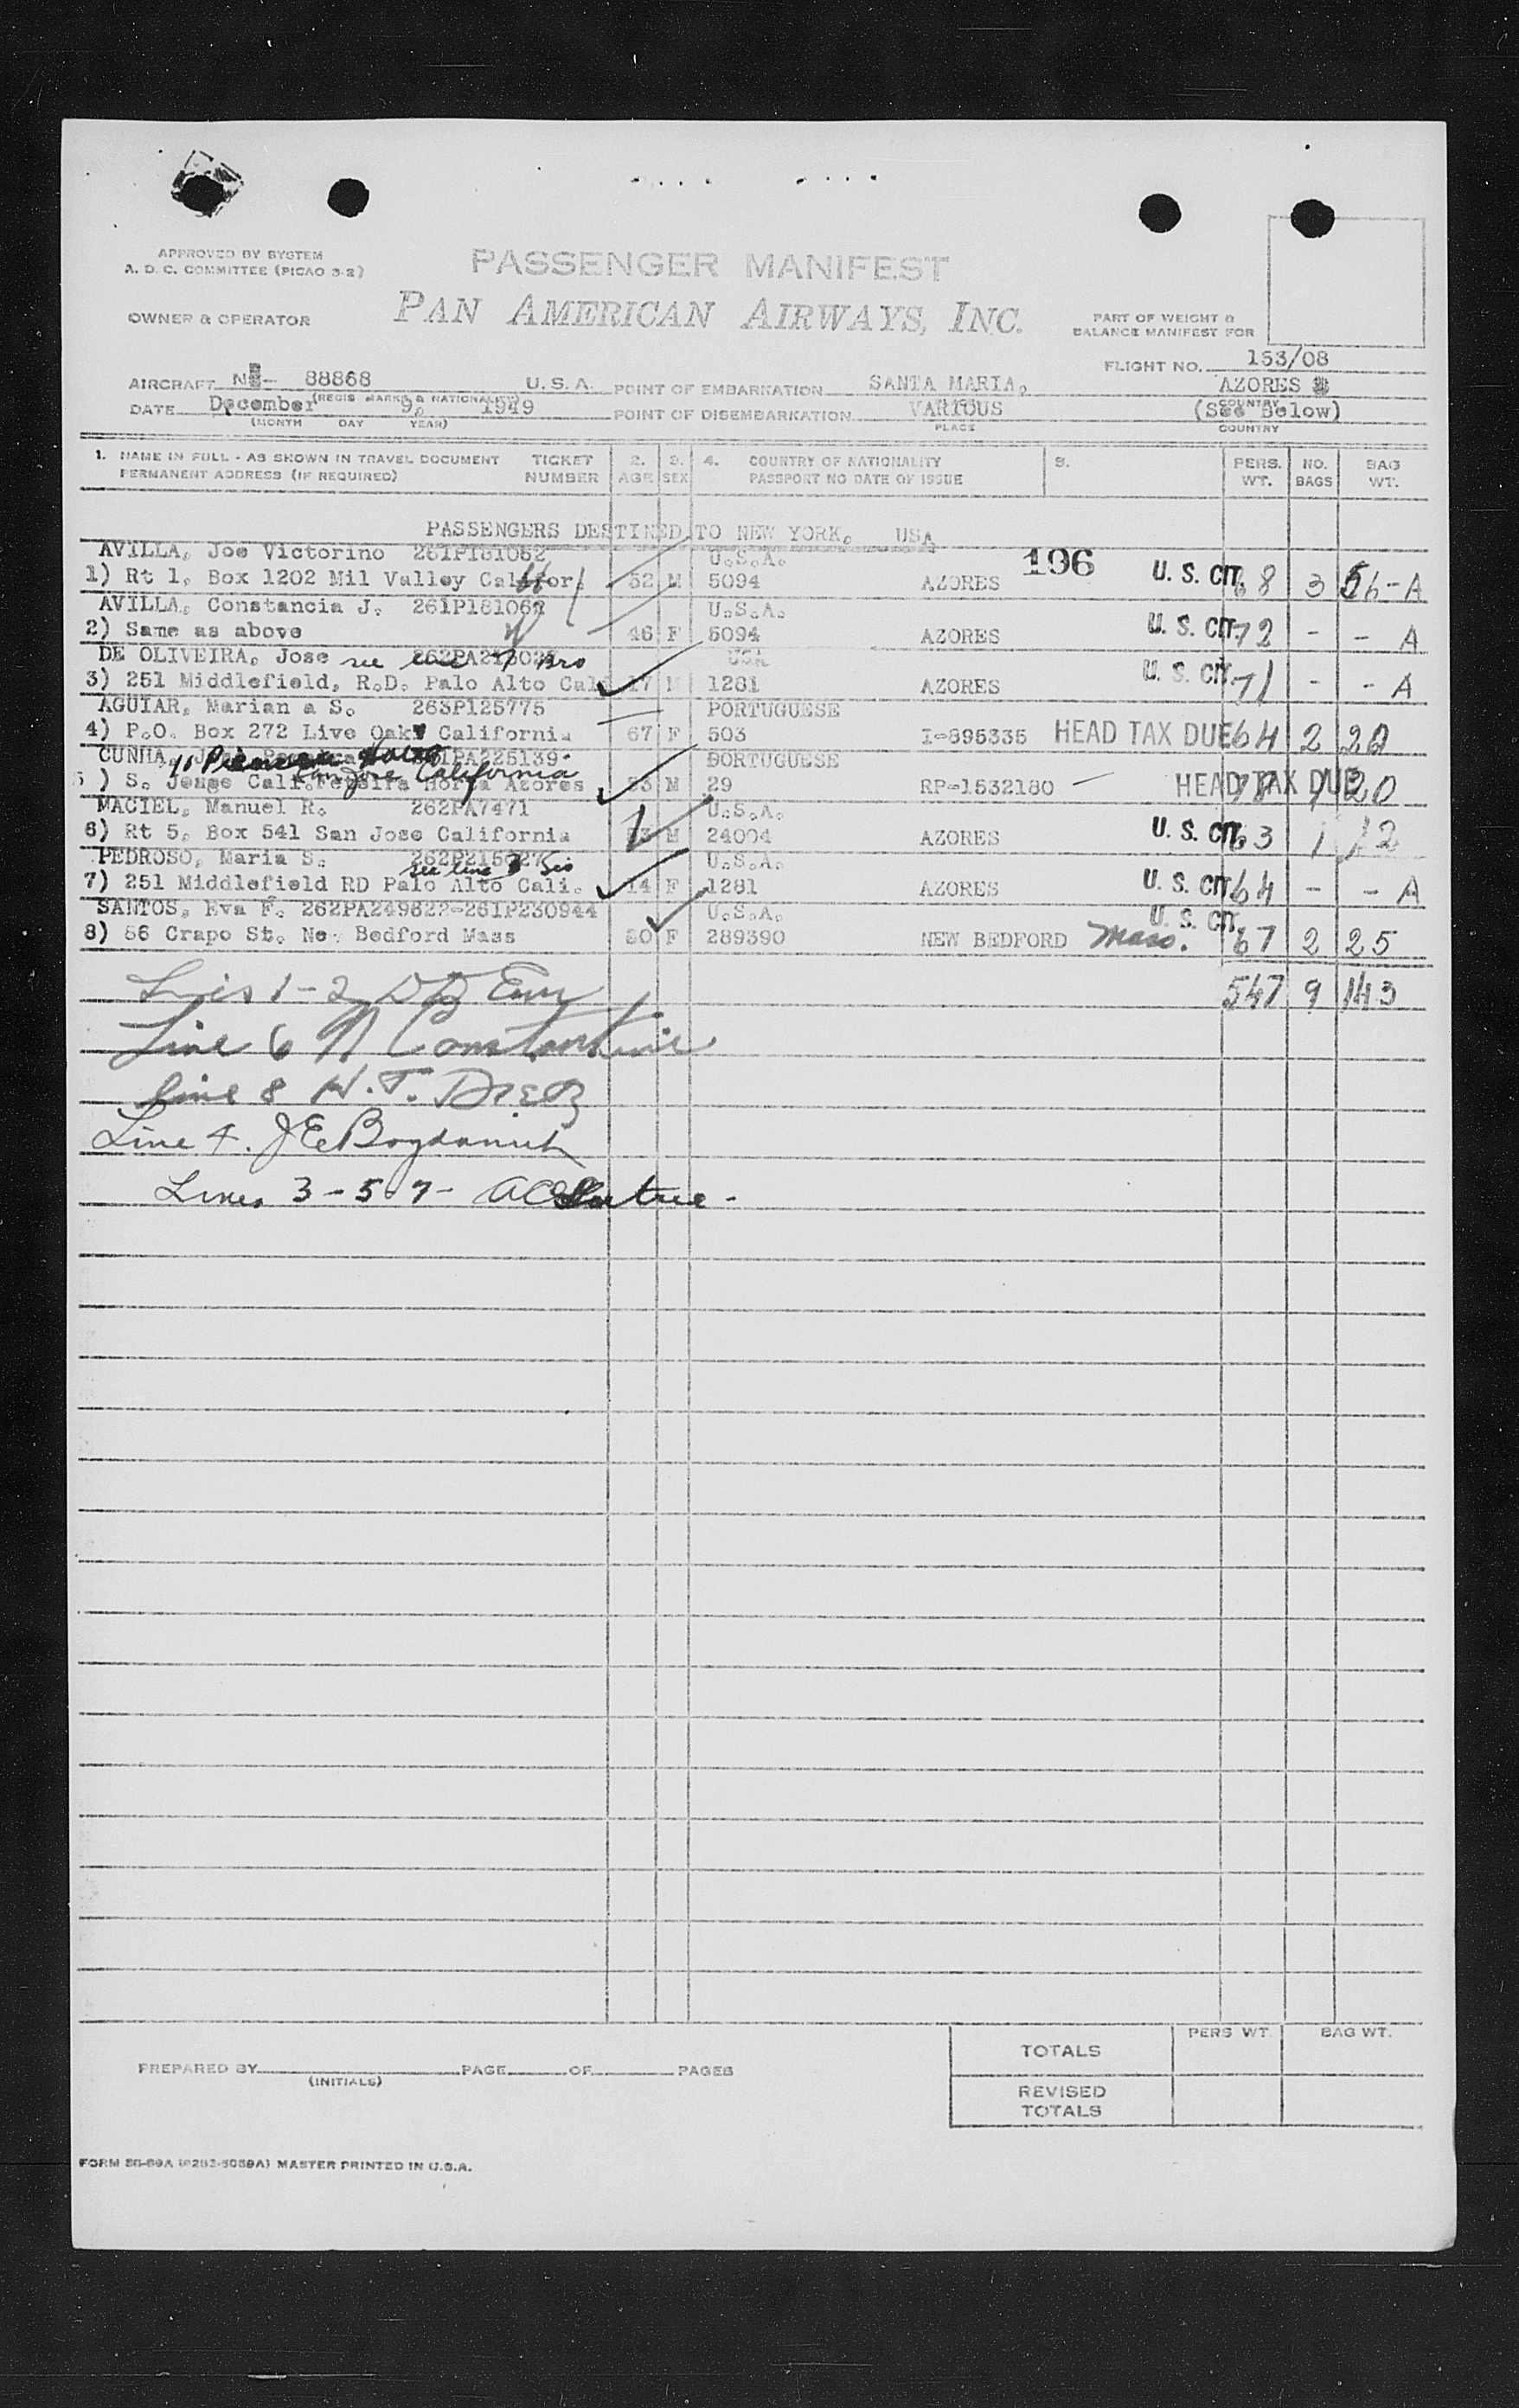 APPROVED BY SYSTEM
A. D. C. COMMITTEE (PICAO 3-2)
PASSENGER MANIFEST
OWNER & OPERATOR
PAN AMERICAN AIRWAYS, INC.
PART OF WEIGHT &
BALANCE MANIFEST FOR
FLIGHT NO. 153/08
AIRCRAFT N - 88868 U.S.A. POINT OF EMBARKATION SANTA MARIA, AZORES
(REGIS MARKS & NATIONALITY) COUNTRY
DATE December 9, 1949 POINT OF DISEMBARKATION VARIOUS (See Below)
(MONTH DAY YEAR) PLACE COUNTRY
1. NAME IN FULL - AS SHOWN IN TRAVEL DOCUMENT TICKET 2. 3. 4. COUNTRY OF NATIONALITY 5. PERS. NO. BAG
PERMANENT ADDRESS (IF REQUIRED) NUMBER AGE SEX PASSPORT NO DATE OF ISSUE WT. BAGS WT.
PASSENGERS DESTINED TO NEW YORK, USA
AVILLA, Joe Victorino 261P181062 U.S.A. 196
1) Rt 1, Box 1202 Mil Valley Califor 52 M 5094 AZORES U. S. CIT. 68 3 56-A
AVILLA, Constancia J. 261P181062 U.S.A.
2) Same as above 46 F 5094 AZORES U. S. CIT. 72 - - A
DE OLIVEIRA, Jose see line 7 Bro USA
3) 251 Middlefield, R.D. Palo Alto Cal 17 M 1281 AZORES U. S. CIT. 71 - - A
AGUIAR, Marian a S. 263P125775 PORTUGUESE
4) P.O. Box 272 Live Oak California 67 F 503 I-895335 HEAD TAX DUE 64 2 20
CUNHA, PA225139 PORTUGUESE
San Jose California
5) S. Jorge Calif. Horta Azores 53 M 29 RP-1532180 - HEAD TAX DUE 1 20
MACIEL, Manuel R. 262PA7471 U.S.A.
6) Rt 5, Box 541 San Jose California M 24004 AZORES U. S. CIT. 63 1 12
PEDROSO, Maria S. 262P215027 U.S.A.
see line 3 Sis
7) 251 Middlefield RD Palo Alto Cali. 14 F 1281 AZORES U. S. CIT. 64 - - A
SANTOS, Eva F. 262PA249622-261P230944 U.S.A. U. S. CIT.
8) 56 Crapo St. New Bedford Mass F 289390 NEW BEDFORD Mass. 67 2 25
Lines 1-2 547 9 143
Line 6 N Constantine
Line 8 H.T. Dietz
Line 4. J E Bogdanich
Lines 3-5-7-
TOTALS PERS WT. BAG WT.
PREPARED BY PAGE OF PAGES
(INITIALS)
REVISED
TOTALS
FORM MASTER PRINTED IN U.S.A.